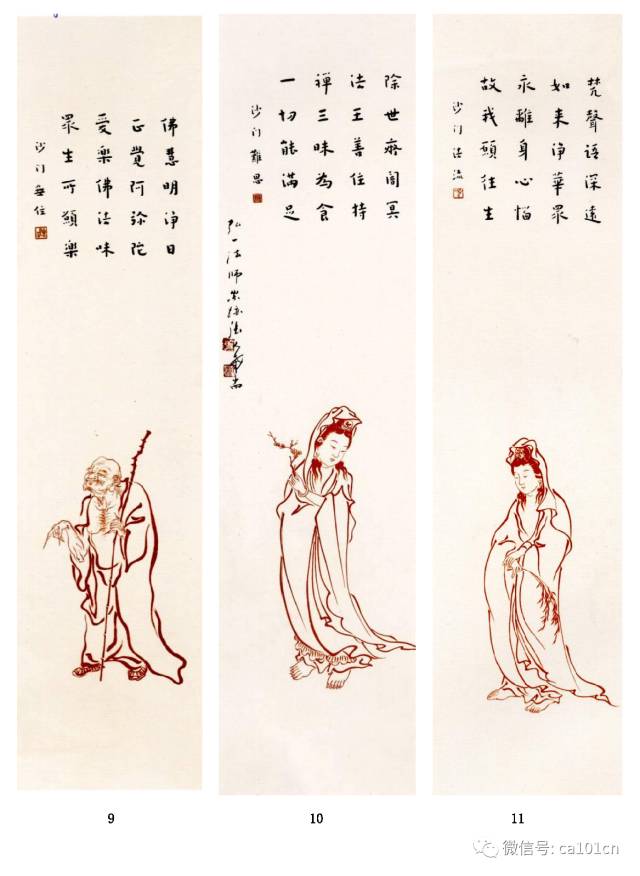 佛慧明净日
正覺阿弥陀
愛樂佛法味
眾生所願樂
沙门無住
除世癡闇冥
法王善住持
禅三昧為食
一切能满足
沙门難思
弘一法師
梵聲语深遠
如来净華眾
永離身心惱
故我願往生
沙门法流
9
10
11
微信号: ca101cn